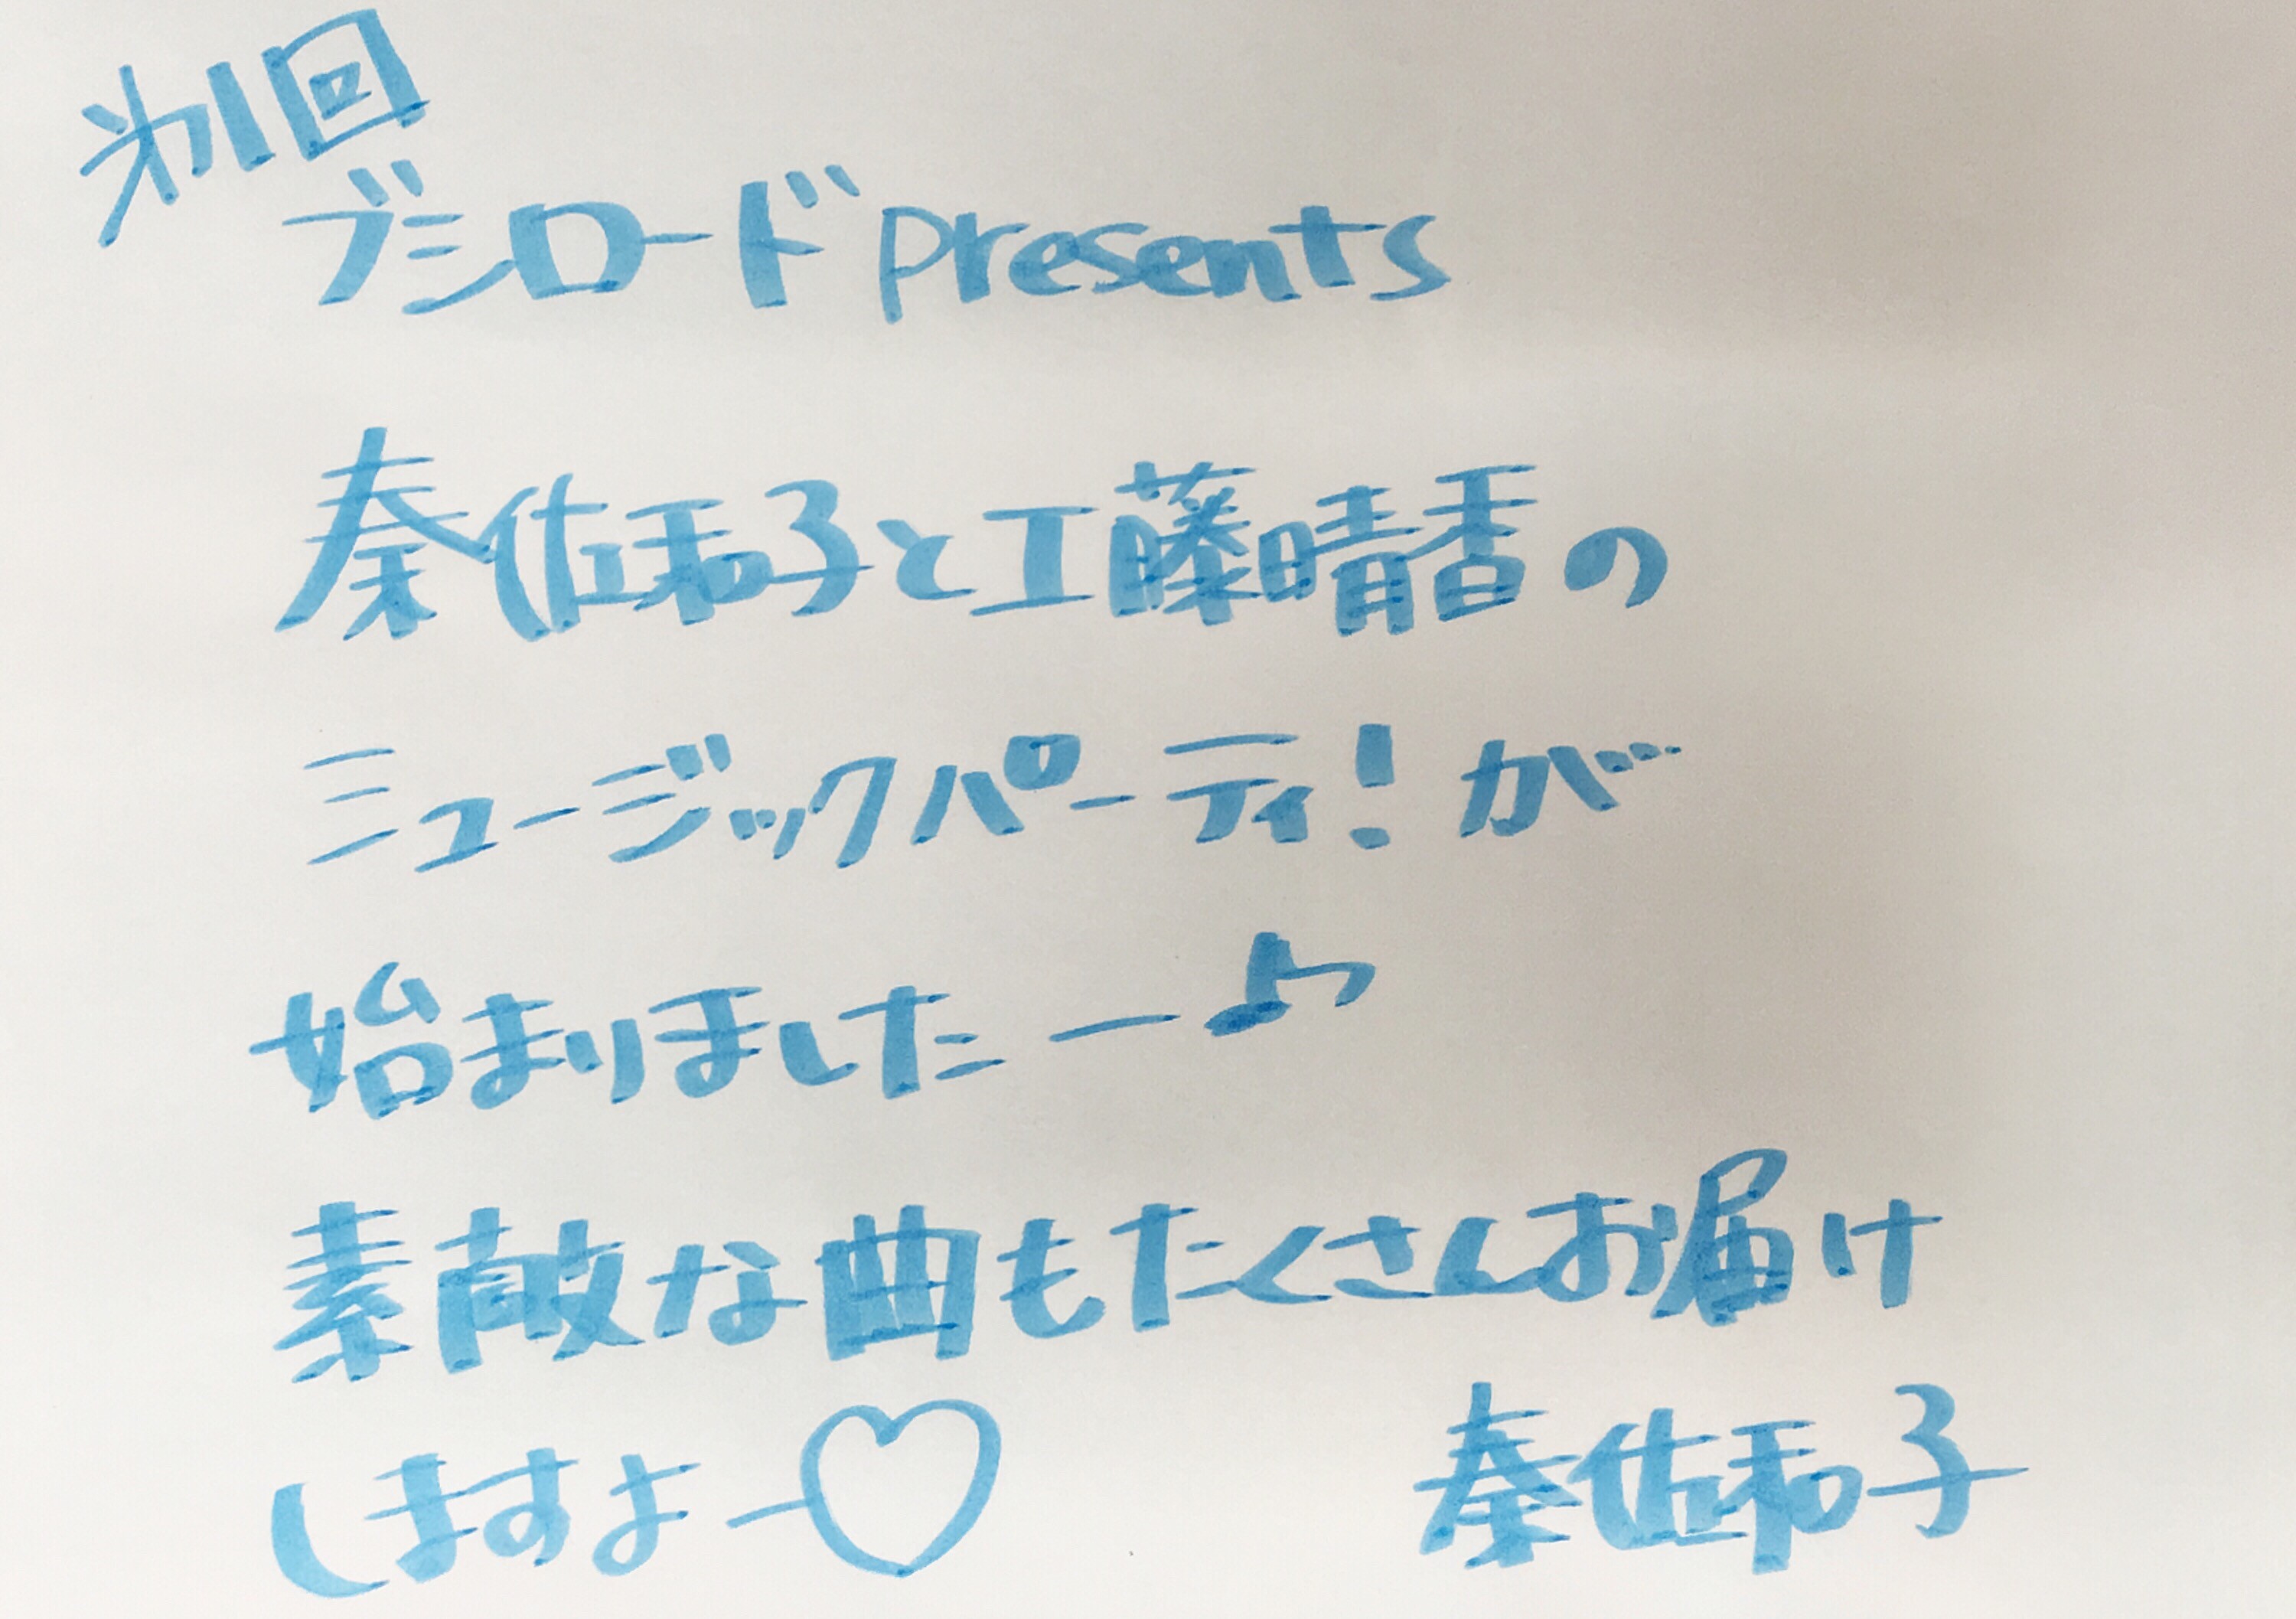 第1回
ブシロードpresents
秦佐和子と工藤晴香の
ミュージックパーティ!が
始まりましたー♪
素敵な曲もたくさんお届け
しますよー♡
秦佐和子